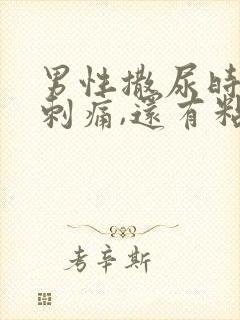 男性撒尿時
刺痛,還有粘
考辛斯